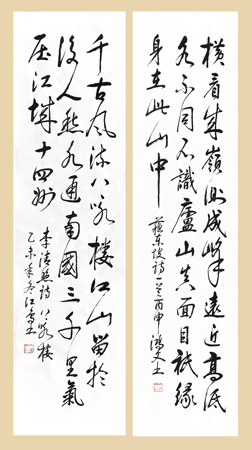 橫看成嶺側成峰遠近高低
各不同不識廬山真面目祇緣
身在此山中
蘇東坡詩一首丙申
千古風流八咏樓江山留於
後人愁水通南國三千里氣
壓江城十四州
李清照詩八咏樓
乙未年冬江雪書